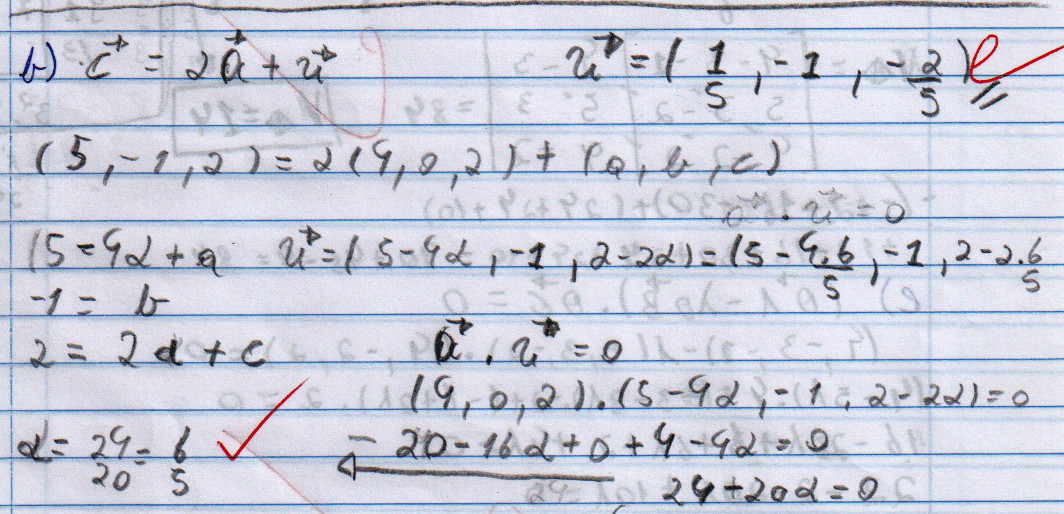 b) c⃗ = αa⃗ + u⃗    u⃗ = (1/5, -1, -2/5)
(5, -1, 2) = α(4, 0, 2) + (a, b, c)
a⃗ . u⃗ = 0
(5 = 4α + a    u⃗ = (5-4α, -1, 2-2α) = (5 - 4.6/5, -1, 2-2.6/5
-1 = b
2 = 2α + c    a⃗ . u⃗ = 0
(4, 0, 2) . (5-4α, -1, 2-2α) = 0
α = 24/20 = 6/5    20 - 16α + 0 + 4 - 4α = 0
24 + 20α = 0